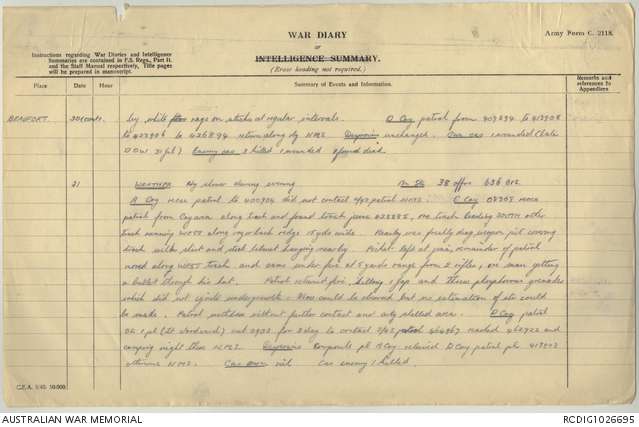 WAR DIARY
or
INTELLIGENCE SUMMARY.
(Erase heading not required.)
Army Form C. 2118.
Instructions regarding War Diaries and Intelligence
Summaries are contained in F.S. Regs., Part II.
and the Staff Manual respectively. Title pages
will be prepared in manuscript.
Place
Date
Hour
Summary of Events and Information.
Remarks and
references to
Appendices
BEAUFORT.
30(contd).
by white rags on sticks at regular intervals. D Coy patrol from 409894 to 413908
to 423906 to 426894 return along rly NMS. Dispositions unchanged. Own cas 1 wounded (late
DOW 31 Jul) Enemy cas 2 killed 1 wounded 2 found dead.
31
WEATHER Dry shower during evening M Str 38 offrs 636 ORs
A Coy recce patrol to 400934 did not contact 2/32 patrol NMS C Coy 08305 recce
patrol from Coy area along track and found track junc 433885, one track leading SOUTH other
track running WEST along razor back ridge 15 yds wide. Nearby was freshly dug weapon pit covering
track with shirt and steel helmet hanging nearby. Picket left at junc, remainder of patrol
moved along WEST track and came under fire at 5 yards range from 2 rifles, one man getting
a bullet through his hat. Patrol returned fire, killing 1 Jap and threw phosphorous grenades
which did not ignite undergrowth. Mess could be observed but no estimation of str could
be made. Patrol withdrew without further contact and arty shelled area. D Coy patrol
OL 1 pl (Lt Woodward) out 0930 for 2 day to contact 2/32 patrol 464967 reached 460922 and
camping night there NMS. Dispositions Composite pl B Coy relieved D Coy patrol pl 413902
otherwise NMS. Cas own nil Cas enemy 1 killed.
C.P.A. 5/43. 50,000.
AUSTRALIAN WAR MEMORIAL
RCDIG1026695